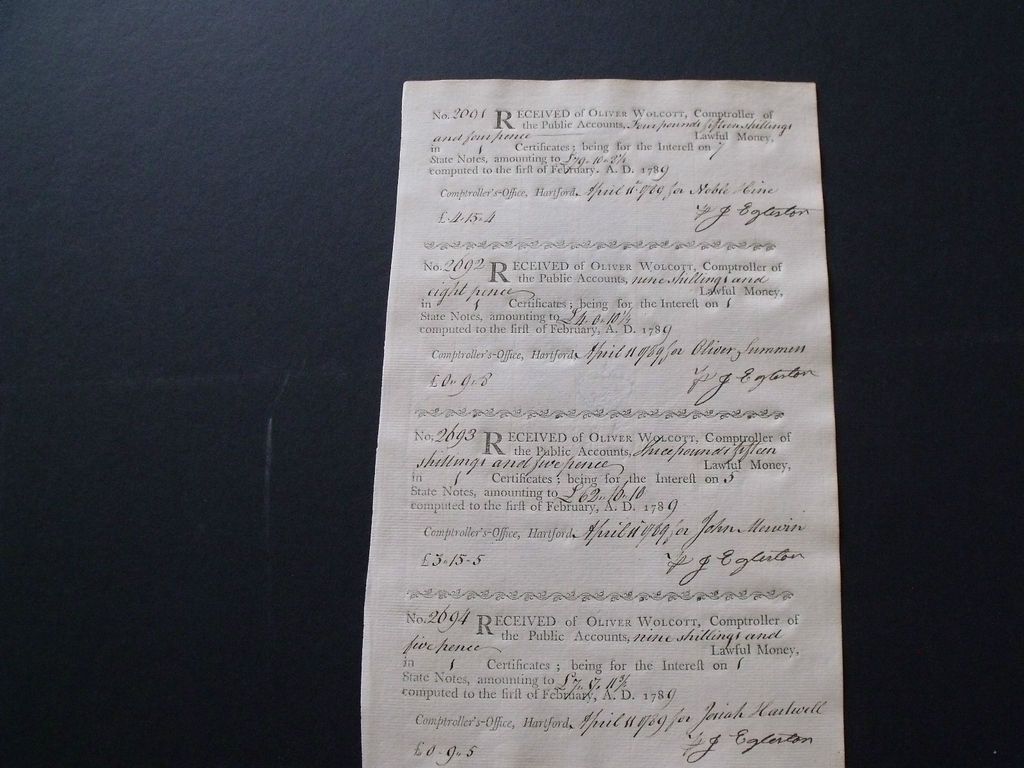 No. 2691 RECEIVED of OLIVER WOLCOTT, Comptroller of
the Public Accounts, Four pounds fifteen shillings
and four pence Lawful Money,
in 1 Certificates; being for the Interest on 7
State Notes, amounting to £79..10..
computed to the first of February, A. D. 1789
Comptroller's-Office, Hartford, April 11 1789 for Noble Hine
£4-15-4 J Eglerton
No. 2692 RECEIVED of OLIVER WOLCOTT, Comptroller of
the Public Accounts, nine shillings and
eight pence Lawful Money,
in 1 Certificates; being for the Interest on 1
State Notes, amounting to
computed to the first of February, A. D. 1789
Comptroller's-Office, Hartford, April 11 1789 for Oliver Summers
£0..9..8 J Eglerton
No. 2693 RECEIVED of OLIVER WOLCOTT, Comptroller of
the Public Accounts, three pounds fifteen
shillings and five pence Lawful Money,
in 1 Certificates; being for the Interest on 5
State Notes, amounting to £62..10..10
computed to the first of February, A. D. 1789
Comptroller's-Office, Hartford, April 11 1789 for John Merwin
£3..15-5 J Eglerton
No. 2694 RECEIVED of OLIVER WOLCOTT, Comptroller of
the Public Accounts, nine shillings and
five pence Lawful Money,
in 1 Certificates; being for the Interest on 1
State Notes, amounting to
computed to the first of February, A. D. 1789
Comptroller's-Office, Hartford, April 11 1789 for Josiah Hartwell
£0-9..5 J Eglerton